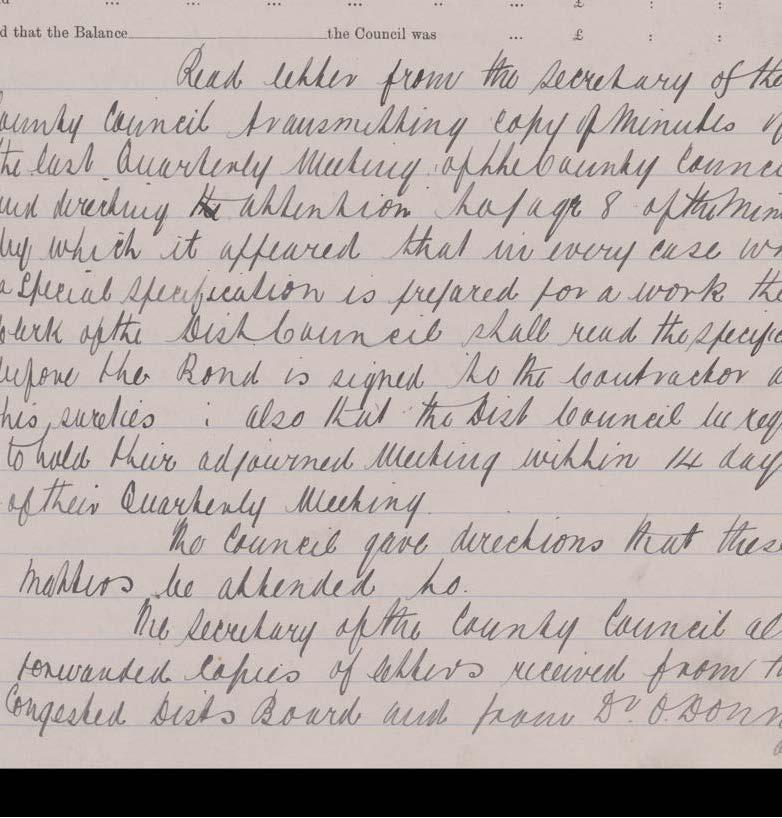 d that the Balance the Council was ... £ : :
Read letter from the Secretary of the
ounty Council transmitting copy of Minutes of
the last Quarterly Meeting of the County Counci
and directing the attention to page 8 of the Min
by which it appeared that in every case wh
a special specification is prepared for a work the
Clerk of the Dist Council shall read the specific
before the Bond is signed to the Contractor a
his sureties : also that the Dist Council be req
to hold their adjourned Meeting within 14 day
of their Quarterly Meeting.
The Council gave directions that these
matters be attended to.
The Secretary of the County Council al
forwarded copies of letters received from th
Congested Dists Board and from Dr. O.Donn